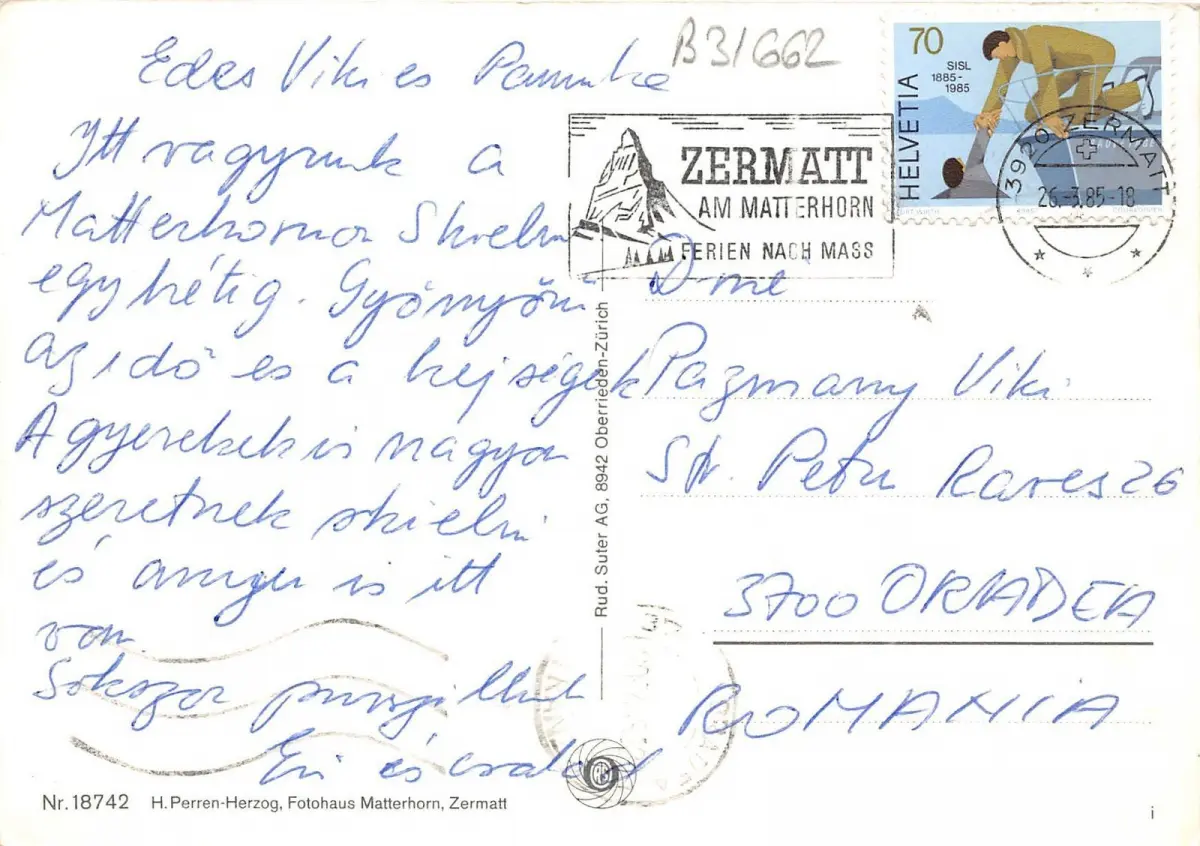 B31662
Edes Viki es
Itt vagyunk a
Matterhornon Skielni
egy hétig. Gyönyörü
az idö es a
A gyerekek is nagyon
szeretnek skielni
és is itt
van
Sokszor
Evi és család
70
SISL
1885-
1985
HELVETIA
3920 ZERMATT
26.-3.85-18
ZERMATT
AM MATTERHORN
FERIEN NACH MASS
D-nei
Pazmany Viki
Str. Petru Rares 26
3700 ORADEA
ROMANIA
Rud. Suter AG, 8942 Oberrieden-Zürich
Nr. 18742 H. Perren-Herzog, Fotohaus Matterhorn, Zermatt
i